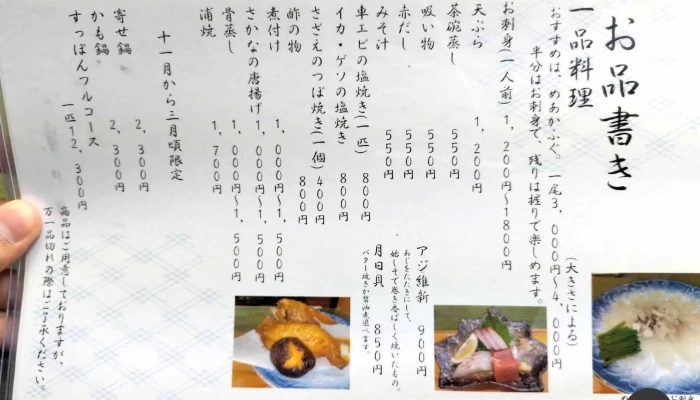 お品書き
一品料理
おすすめは、めあかふぐ。一尾3,000円〜4,000円
(大きさによる)
半分はお刺身で、残りは握りで楽しめます。
お刺身(一人前)1,200円〜1800円
天ぷら 1,200円
茶碗蒸し 550円
吸い物 550円
赤だし 550円
みそ汁 550円
車エビの塩焼き(一匹) 800円
イカ・ゲソの塩焼き 800円
さざえのつぼ焼き(一個) 400円
酢の物 800円
煮付け 1,000円〜1,500円
さかなの唐揚げ 1,000円〜1,500円
骨蒸し 1,000円〜1,500円
浦焼 1,700円
アジ維新 900円
あじをたたきにして、
始しそで巻き香ばしく焼いたもの。
月日貝 850円
バター焼きか醤油煮選べます。
十一月から三月頃限定
寄せ鍋 2,300円
かも鍋 2,300円
すっぽんフルコース
一匹12,300円
商品はご用意しておりますが、
万一品切れの際はご了承ください。